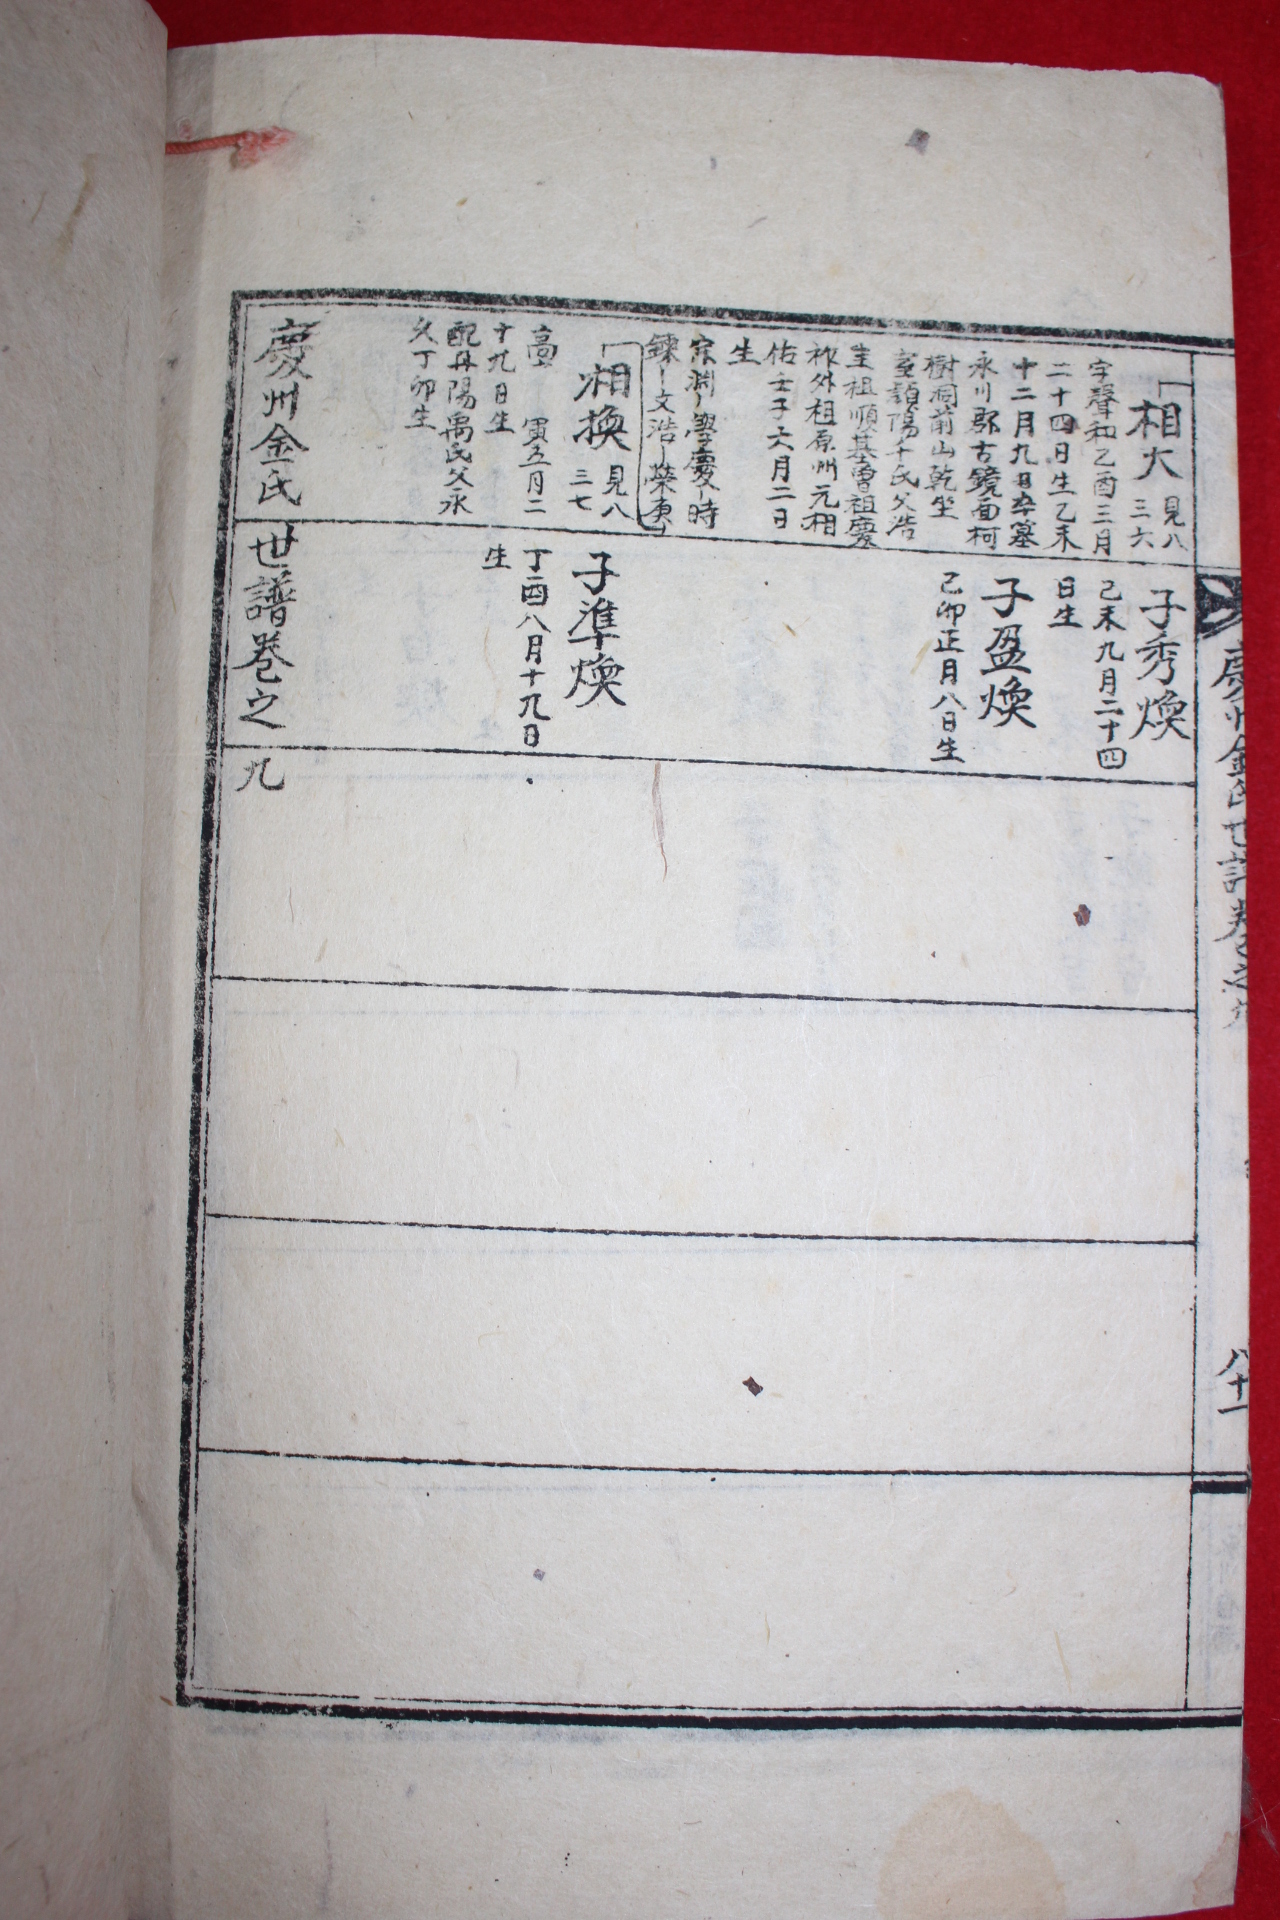 慶州金氏世譜卷之九
八十一
相大 見八三六
字聲和乙酉三月
二十四日生乙未
十二月九日卒墓
永川郡古鏡面柯
樹洞前山乾坐
室潁陽千氏父浩
圭祖順基曾祖慶
祚外祖原州元相
佑壬子六月二日
生
子秀煥
己未九月二十四
日生
子盈煥
己卯正月八日生
宗淵 學慶 時
鍊 文浩 榮庚
相換 見八三七
寅五月二
十九日生
配丹陽禹氏父永
久丁卯生
子準煥
丁酉八月十九日
生
慶州金氏世譜卷之九